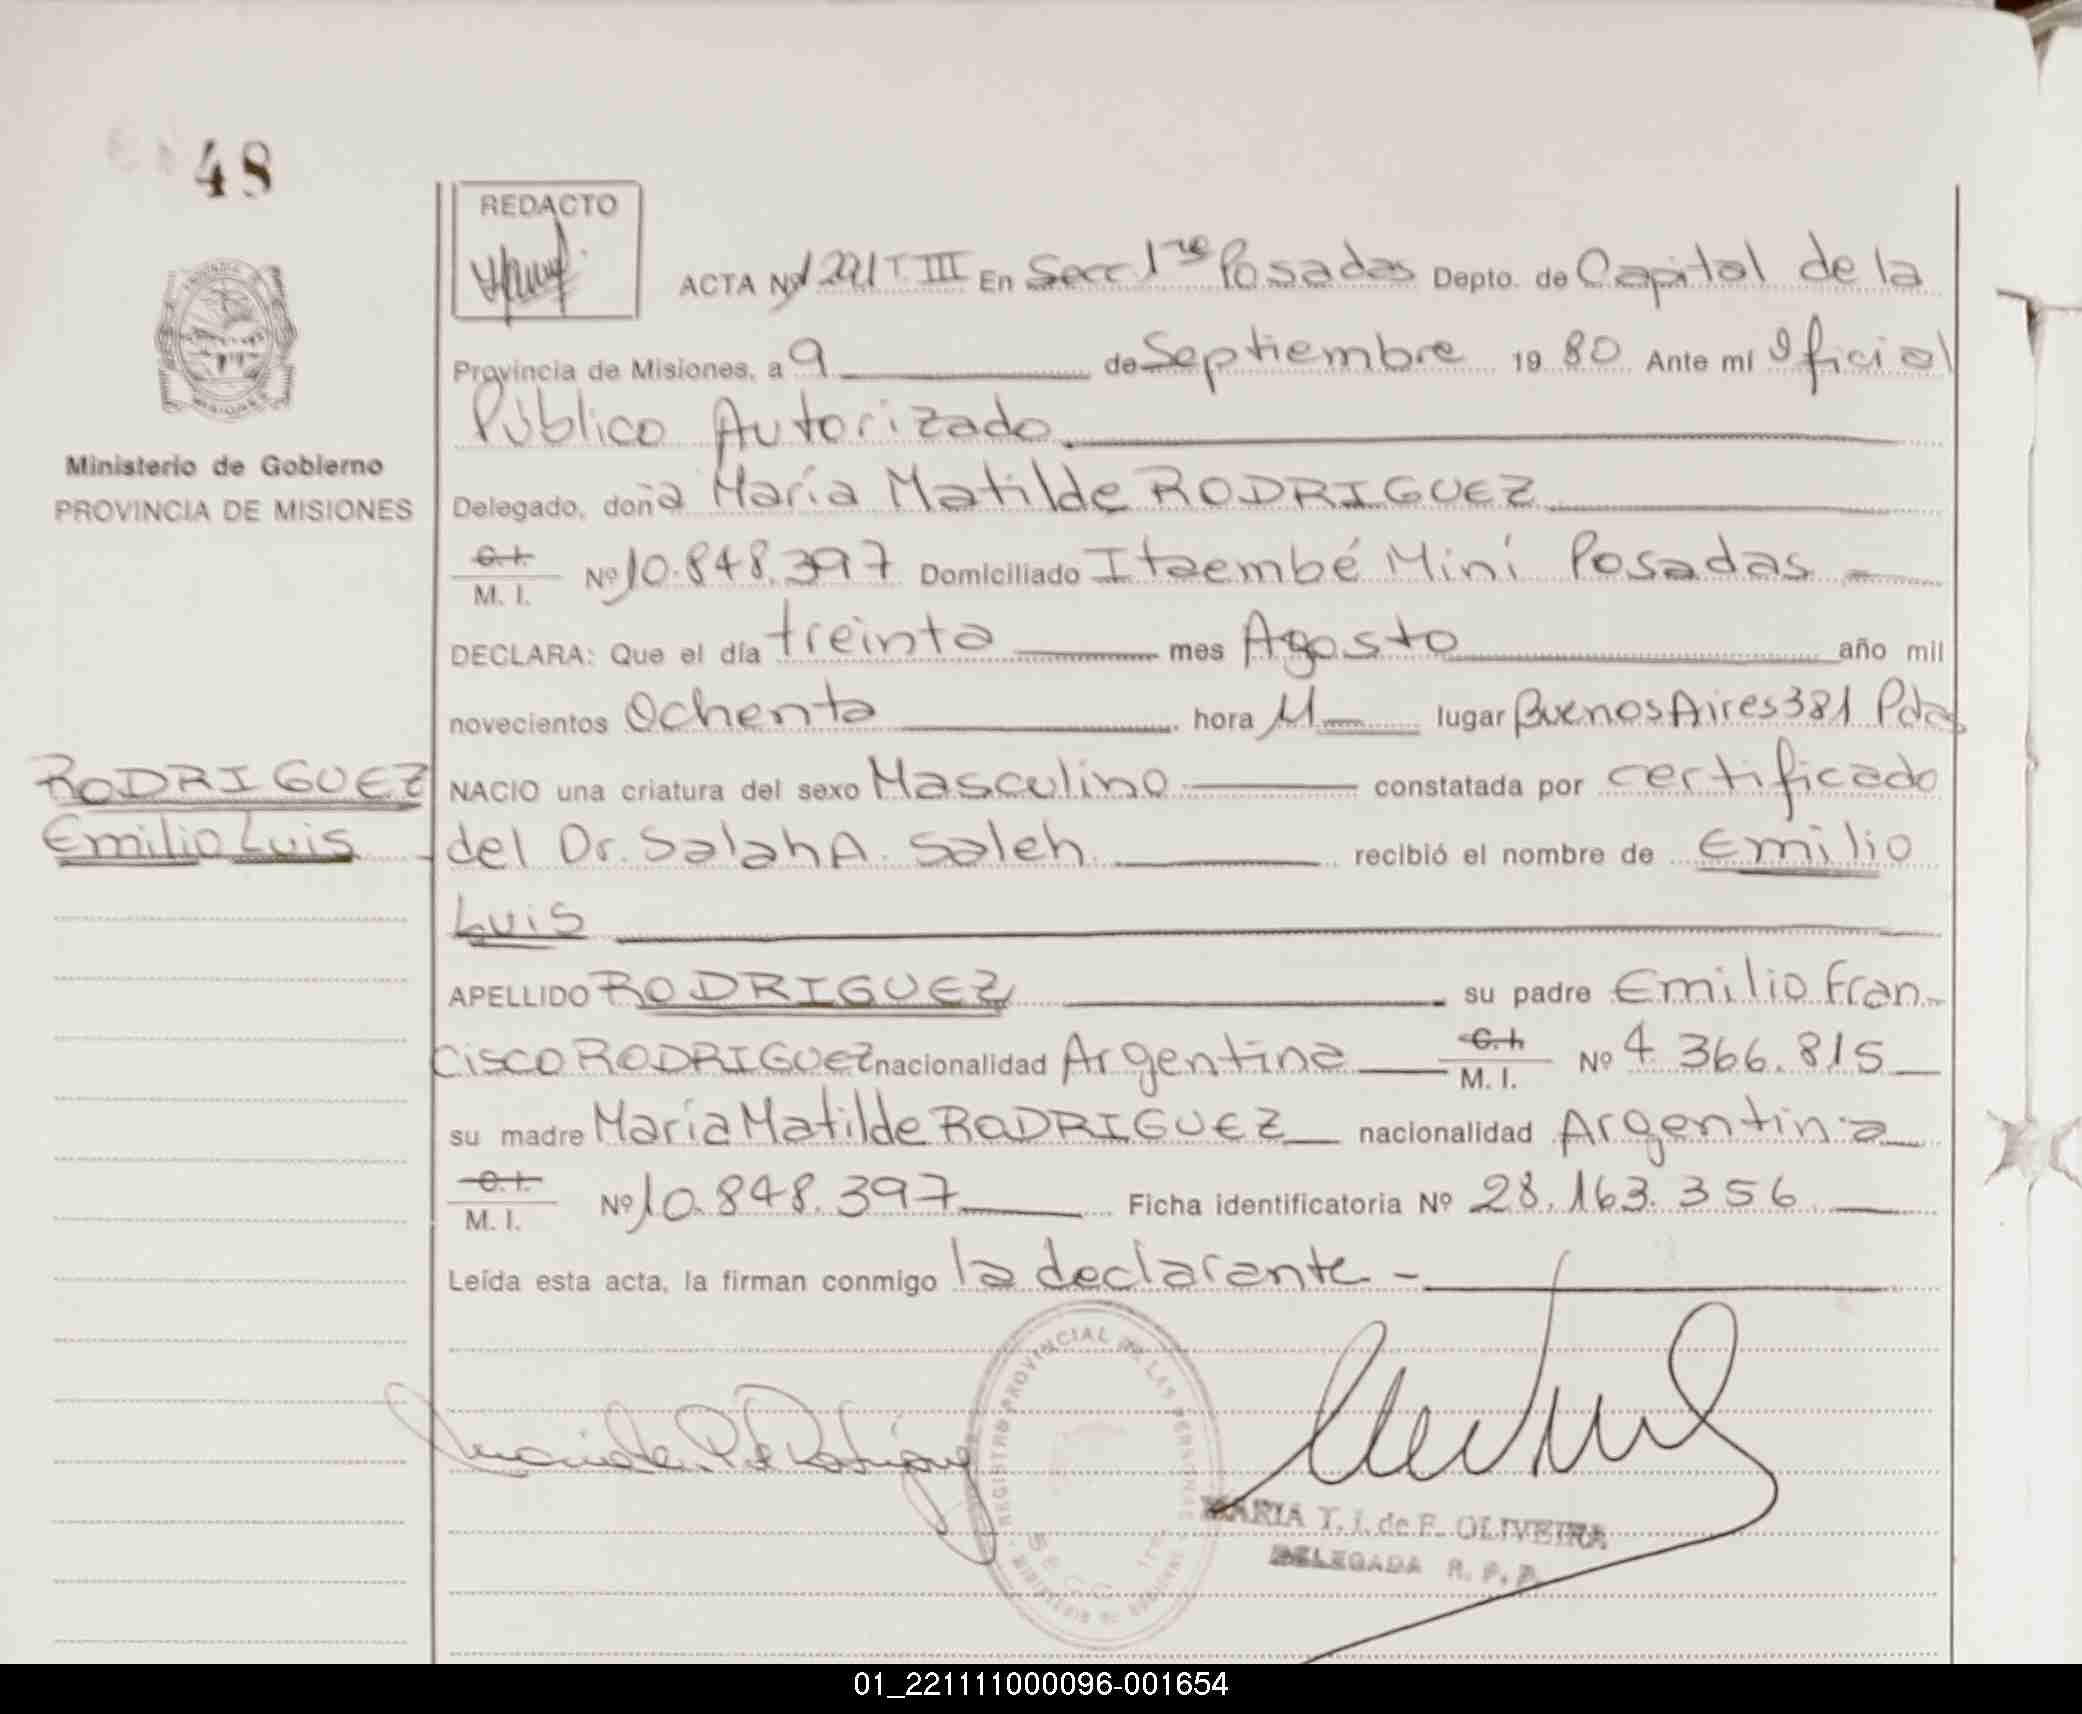 48
REDACTO
ACTA Nº 1221 T III En Secc 1ra Posadas Depto. de Capital de la
Provincia de Misiones, a 9 de Septiembre 1980 Ante mí Oficial
Público Autorizado
Ministerio de Gobierno
PROVINCIA DE MISIONES
Delegado, doña María Matilde RODRIGUEZ
C.I.
M. I. Nº 10.848.397 Domiciliado Itaembé Miní Posadas
DECLARA: Que el día treinta mes Agosto año mil
novecientos Ochenta hora 11 lugar Buenos Aires 381 Pdas
RODRIGUEZ
Emilio Luis
NACIO una criatura del sexo Masculino constatada por certificado
del Dr. Salah A. Saleh recibió el nombre de Emilio
Luis
APELLIDO RODRIGUEZ su padre Emilio Fran-
cisco RODRIGUEZ nacionalidad Argentina C.I. M. I. Nº 4.366.815
su madre María Matilde RODRIGUEZ nacionalidad Argentina
C.I.
M. I. Nº 10.848.397 Ficha identificatoria Nº 28.163.356
Leída esta acta, la firman conmigo la declarante -
REGISTRO PROVINCIAL DE LAS PERSONAS
MINISTERIO DE GOBIERNO
SECC. 1ra
MARIA T. I. de F. OLIVEIRA
DELEGADA R. P. P.
01_221111000096-001654